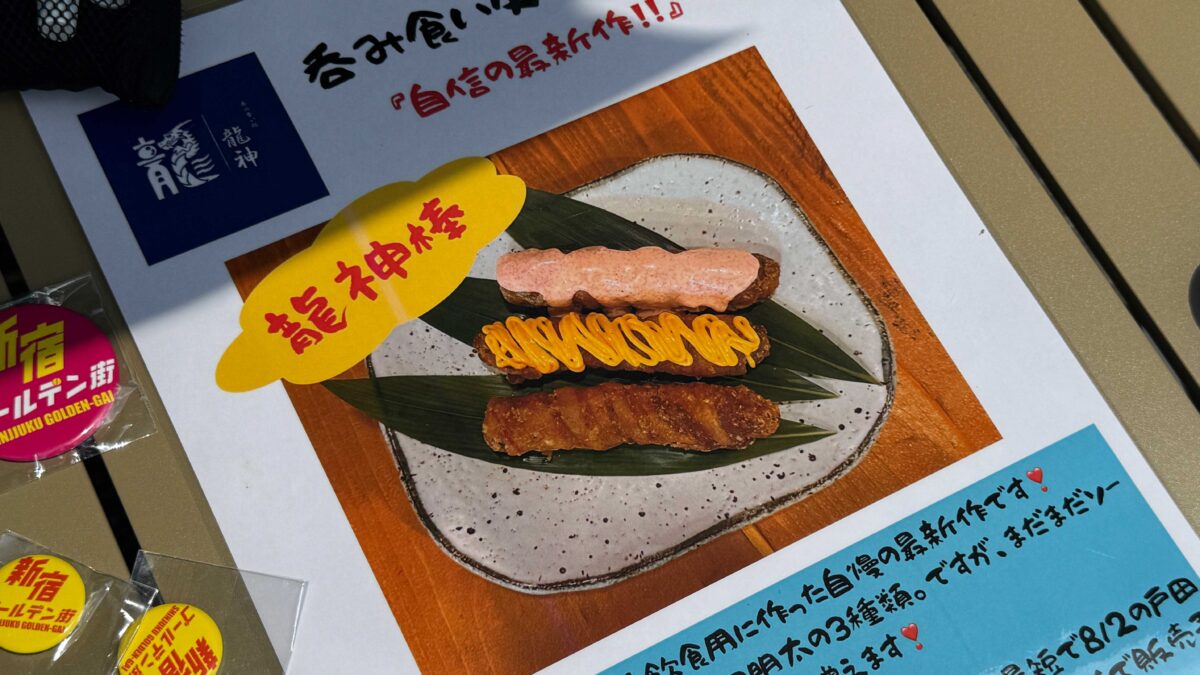 呑み食い
『自信の最新作!!』
龍
龍神
龍神棒
新宿
ールデン街
NJUKU GOLDEN-GAI
新宿
ールデン街
JUKU GOLDEN-GAI
新宿
ゴールデン
SHINJUKU GOLDEN
飲食用に作った自慢の最新作です❣
明太の3種類。ですが、まだまだソー
増えます❣
最短で8/2の戸田
で販売